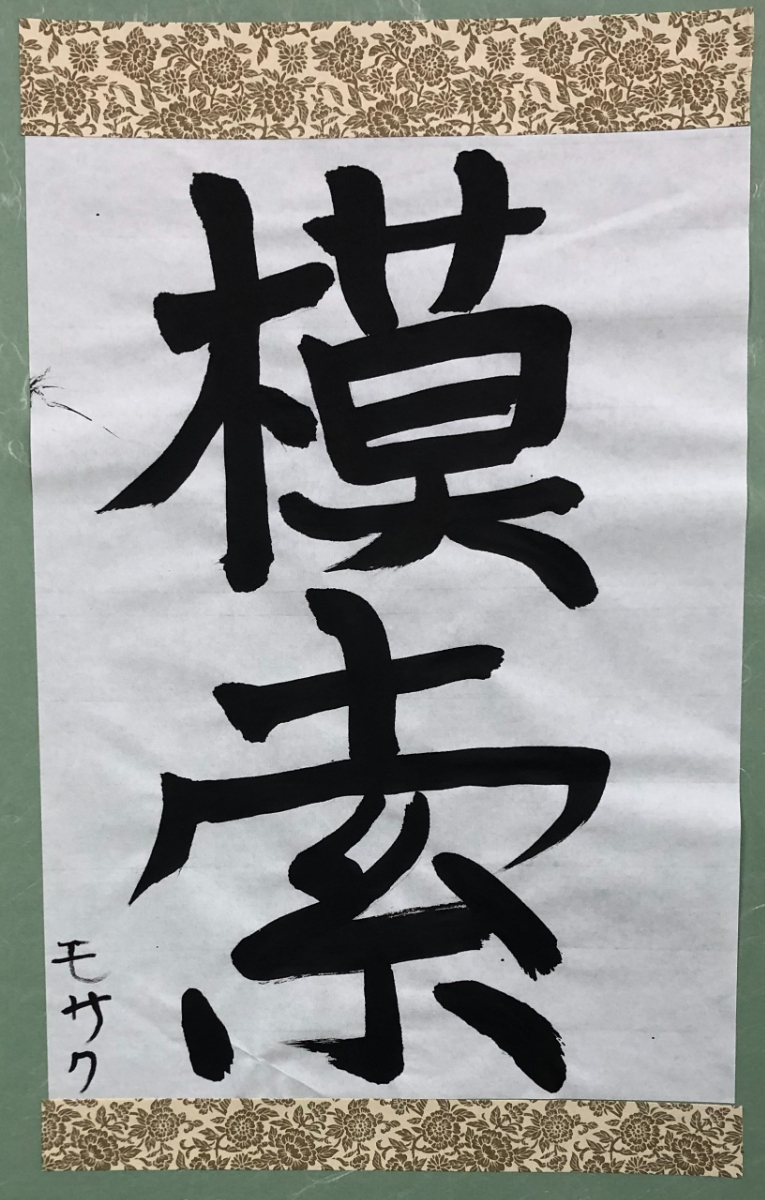 模索
モサク